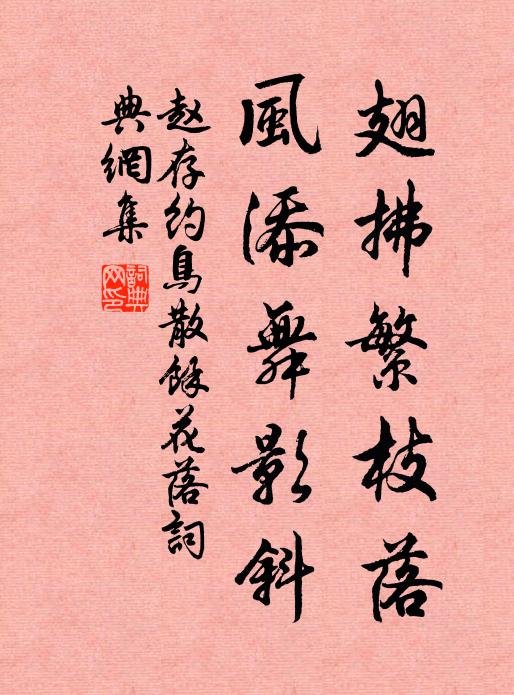 翅拂繁枝落
風添舞影斜
赵存约鳥散餘花落詞
典網集
詞典網印